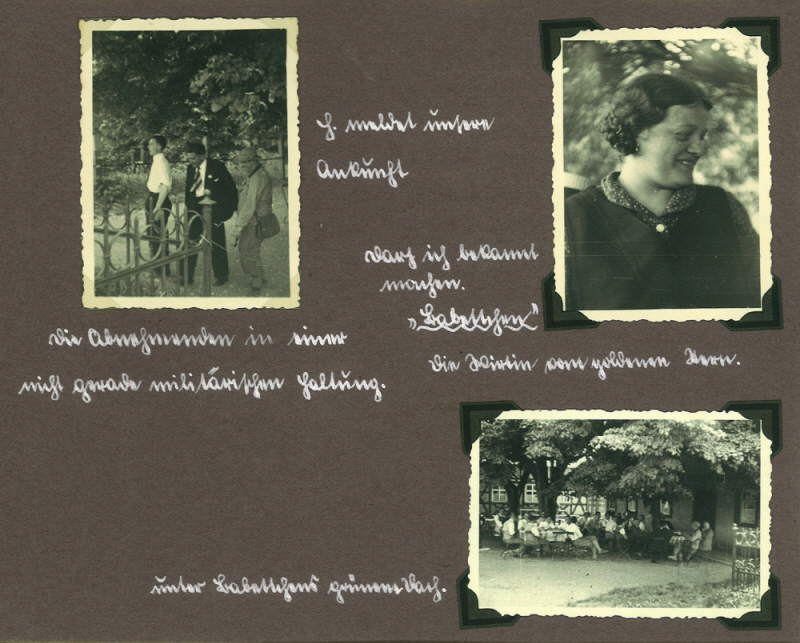 H. meldet unsere
Ankunft
Die Abnehmenden in einer
nicht gerade militärischen Haltung.
Darf ich bekannt
machen.
„Babettchen"
Die Wirtin vom goldenen Stern.
unter Babettchens grünem Dach.